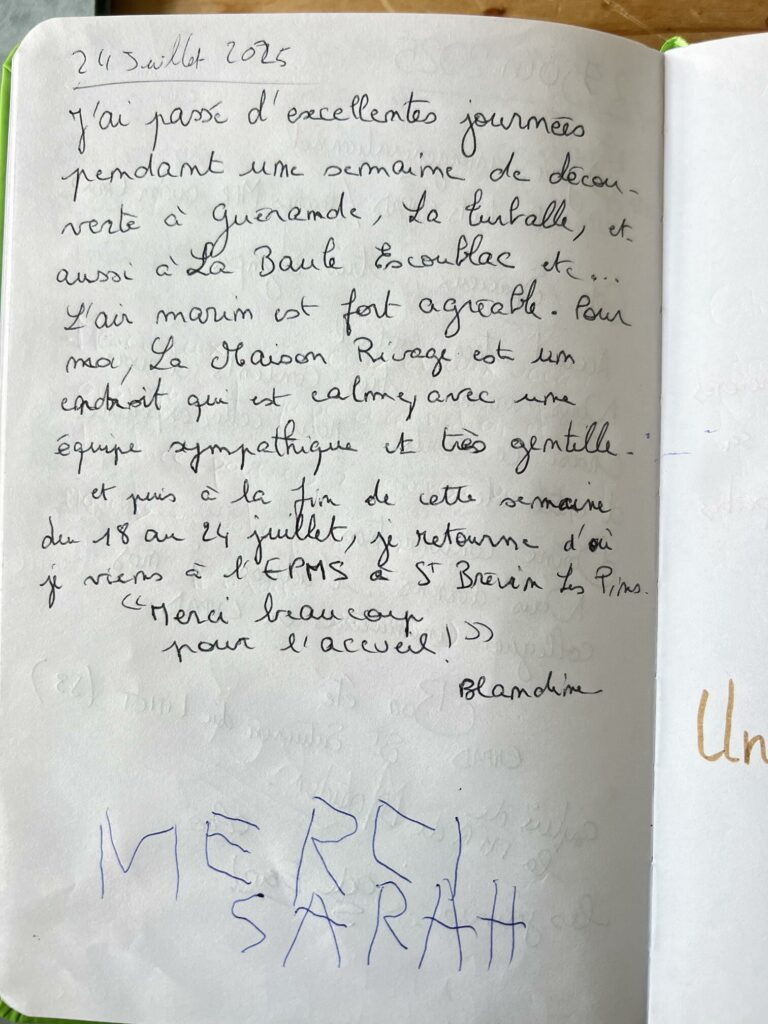 24 Juillet 2025
J'ai passé d'excellentes journées
pendant une semaine de décou-
verte à Guérande, La turballe, et
aussi à La Baule Escoublac etc...
L'air marin est fort agréable. Pour
moi, La Maison Rivage est un
endroit qui est calme, avec une
équipe sympathique et très gentille.
et puis à la fin de cette semaine
du 18 au 24 juillet, je retourne d'où
je viens à l'EPMS à St Brévin Les Pins.
"Merci beaucoup
pour l'accueil!"
Blandine
MERCI
SARAH
Un